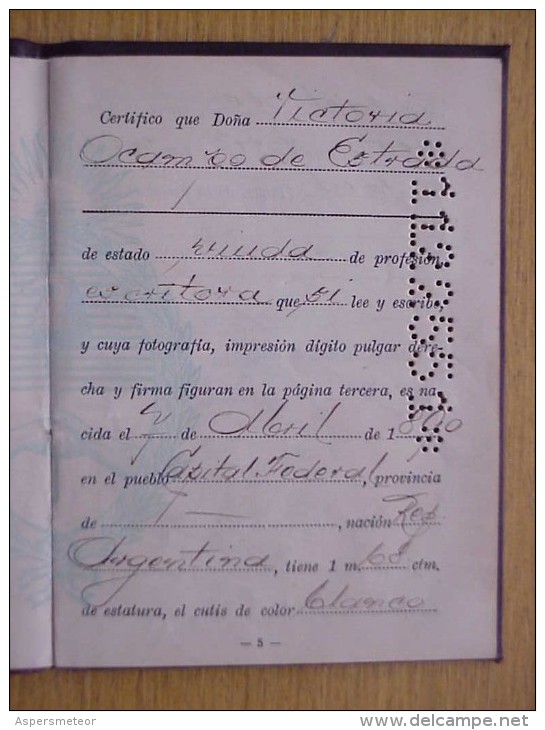 Certifico que Doña Victoria
Ocampo de Estrada
de estado viuda de profesión,
escritora que si lee y escribe,
y cuya fotografía, impresión dígito pulgar dere-
cha y firma figuran en la página tercera, es na-
cida el 7 de Abril de 1890
en el pueblo Capital Federal, provincia
de , nación Rep.
Argentina, tiene 1 m. 68 ctm.
de estatura, el cutis de color blanco
— 5 —
Aspersmeteor
delcampe.net